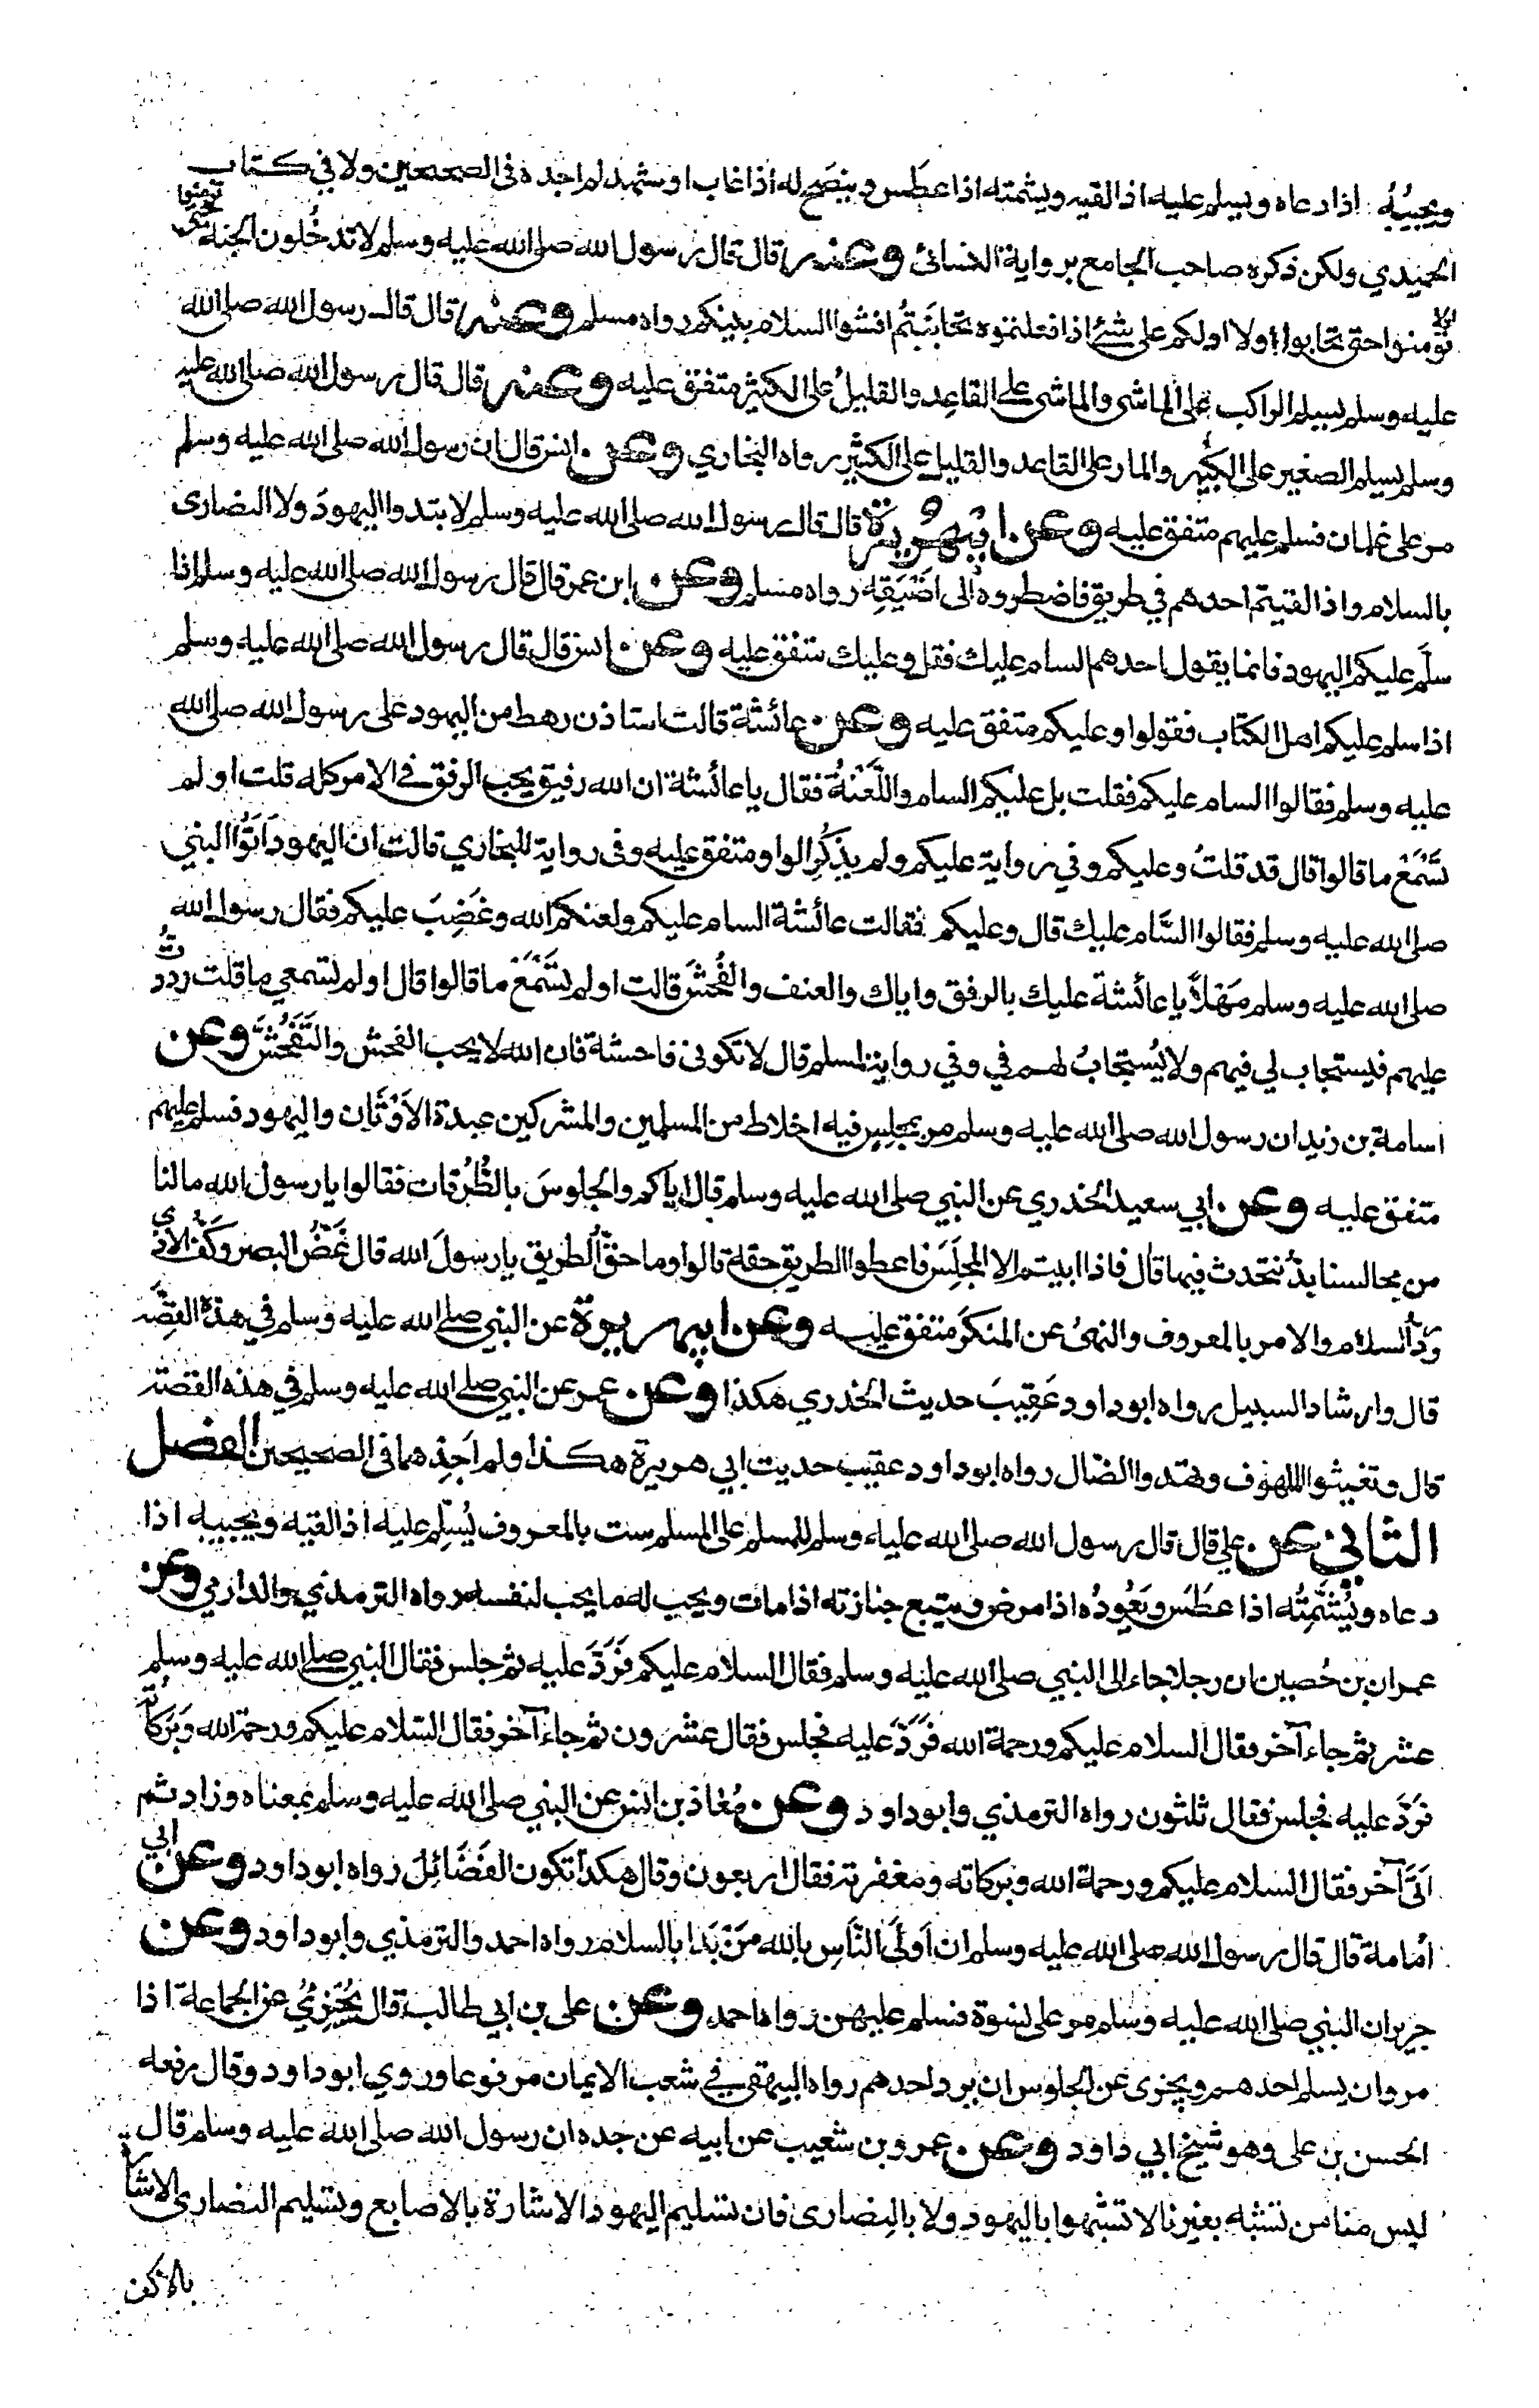 ويجيبُهُ اذا دعاه ويسلم عليه اذا لقيه ويشمته اذا عطَس وينصَح له اذا غاب او شهد لم اجده في الصحيحين ولا في كتاب
الحميدي ولكن ذكره صاحب الجامع برواية النسائي وعنه قال قال رسول الله صلى الله عليه وسلم لا تدخُلون الجنة حتى تؤمنوا
ولا تؤمنوا حتى تحابوا اولا ادلكم على شئ اذا فعلتموه تحابَبتُم افشوا السلام بينكم رواه مسلم وعنه قال قال رسول الله صلى الله
عليه وسلم يسلم الراكب على الماشي والماشي على القاعِد والقليلُ على الكثير متفق عليه وعنه قال قال رسول الله صلى الله عليه
وسلم يسلم الصغير على الكبير والمار على القاعد والقليل على الكثير رواه البخاري وعن انس قال ان رسول الله صلى الله عليه وسلم
مر على غلمان فسلم عليهم متفق عليه وعن ابي هُريرة قال قال رسول الله صلى الله عليه وسلم لا تبدوا اليهودَ ولا النصارى
بالسلام واذا لقيتم احدهم في طريق فاضطروه الى اضْيَقِه رواه مسلم وعن ابن عمر قال قال رسول الله صلى الله عليه وسلم اذا
سلَّم عليكم اليهود فانما يقول احدهم السام عليك فقل وعليك متفق عليه وعن انس قال قال رسول الله صلى الله عليه وسلم
اذا سلم عليكم اهل الكتاب فقولوا وعليكم متفق عليه وعن عائشة قالت استاذن رهط من اليهود على رسول الله صلى الله
عليه وسلم فقالوا السام عليكم فقلت بل عليكم السام واللَّعْنةُ فقال يا عائشة ان الله رفيق يحب الرفق في الامر كله قلت اولم
تسْمَعْ ما قالوا قال قد قلتُ وعليكم وفي رواية عليكم ولم يذكُرِ الواو متفق عليه وفي رواية للبخاري قالت ان اليهودَ اَتَوُا النبي
صلى الله عليه وسلم فقالوا السَّام عليك قال وعليكم فقالت عائشة السام عليكم ولعنكم الله وغَضِبَ عليكم فقال رسول الله
صلى الله عليه وسلم مَهْلاً يا عائشة عليك بالرفق واياك والعنف والفُحْشَ قالت اولم تسْمَعْ ما قالوا قال اولم تسمعي ما قلت رددتُ
عليهم فيستجاب لي فيهم ولا يُستجابُ لهم في وفي رواية لمسلم قال لا تكوني فاحشة فان الله لا يحب الفحش والتَّفَحُّش وعن
اسامة بن زيد ان رسول الله صلى الله عليه وسلم مر بمجلس فيه اخلاط من المسلمين والمشركين عبدة الاَوْثَان واليهود فسلم عليهم
متفق عليه وعن ابي سعيد الخدري عن النبي صلى الله عليه وسلم قال اياكم والجلوسَ بالطُّرُقات فقالوا يا رسول الله ما لنا
من مجالسنا بدٌّ نتحدث فيها قال فاذا ابيتم الا المجلَس فاعطوا الطريق حقه قالوا وما حقُّ الطريق يا رسولَ الله قال غَضُّ البصر وكَفُّ الاذى
ورَدُّ السلام والامر بالمعروف والنهيُ عن المنكر متفق عليه وعن ابي هريرة عن النبي صلى الله عليه وسلم في هذه القصة
قال وارشاد السبيل رواه ابو داود عَقِيبَ حديث الخدري هكذا وعن عمر عن النبي صلى الله عليه وسلم في هذه القصة
قال وتغيثوا الملهوف وتهدوا الضال رواه ابو داود عقيب حديث ابي هريرة هكذا ولم اَجِدْهما في الصحيحين الفصل
الثاني عن علي قال قال رسول الله صلى الله عليه وسلم للمسلم على المسلم ست بالمعروف يُسلِّم عليه اذا لقيه ويجيبه اذا
دعاه ويُشَمِّتُه اذا عطَسَ ويَعُودُه اذا مرض ويتبع جنازته اذا مات ويحب له ما يحب لنفسه رواه الترمذي والدارمي وعن
عمران بن حُصين ان رجلا جاء الى النبي صلى الله عليه وسلم فقال السلام عليكم فَرَدَّ عليه ثم جلس فقال النبي صلى الله عليه وسلم
عشر ثم جاء آخر فقال السلام عليكم ورحمة الله فَرَدَّ عليه فجلس فقال عشرون ثم جاء آخر فقال السلام عليكم ورحمة الله وبَركاتُه
فرَدَّ عليه فجلس فقال ثلثون رواه الترمذي وابو داود وعن مُعاذ بن انس عن النبي صلى الله عليه وسلم بمعناه وزاد ثم
اَتى آخر فقال السلام عليكم ورحمة الله وبركاته ومغفرته فقال اربعون وقال هكذا تكون الفَضَائِل رواه ابو داود وعن ابي
اُمامة قال قال رسول الله صلى الله عليه وسلم ان اَولَى النَّاسِ بالله مَنْ بَدا بالسلام رواه احمد والترمذي وابو داود وعن
جرير ان النبي صلى الله عليه وسلم مر على نسوة فسلم عليهن رواه احمد وعن على بن ابي طالب قال يُجْزِئُ عن الجماعة اذا
مروا ان يسلم احدهم ويجزى عن الجلوس ان يرد احدهم رواه البيهقي في شعب الايمان مرفوعا وروي ابو داود وقال رفعه
الحسن بن على وهو شيخ ابي داود وعن عمرو بن شعيب عن ابيه عن جده ان رسول الله صلى الله عليه وسلم قال
ليس منا من تشبه بغيرنا لا تشبهوا باليهود ولا بالنصارى فان تسليم اليهود الاشارة بالاصابع وتسليم النصارى الاشارة
بالاكف